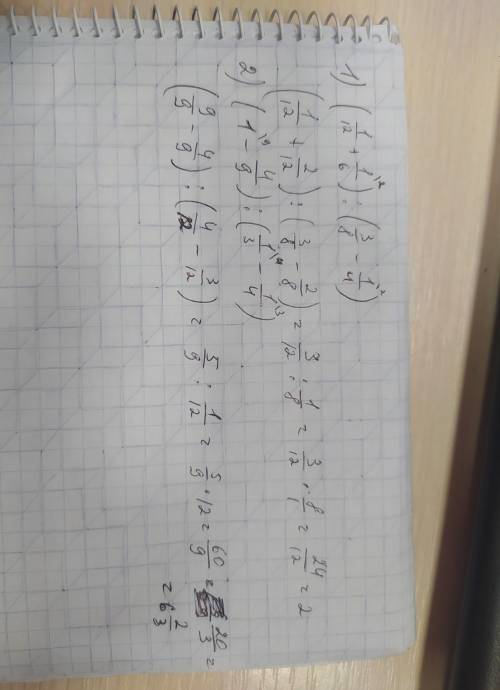 1) (1/12 + 1/6^\2) : (3/8 - 1/4^\2)
(1/12 + 2/12) : (3/8 - 2/8) = 3/12 : 1/8 = 3/12 : 8/1 = 24/12 = 2
2) (1^\9 - 4/9) : (1/3^\4 - 1/4^\3)
(9/9 - 4/9) : (4/12 - 3/12) = 5/9 : 1/12 = 5/9 · 12 = 60/9 = 20/3 =
= 6 2/3